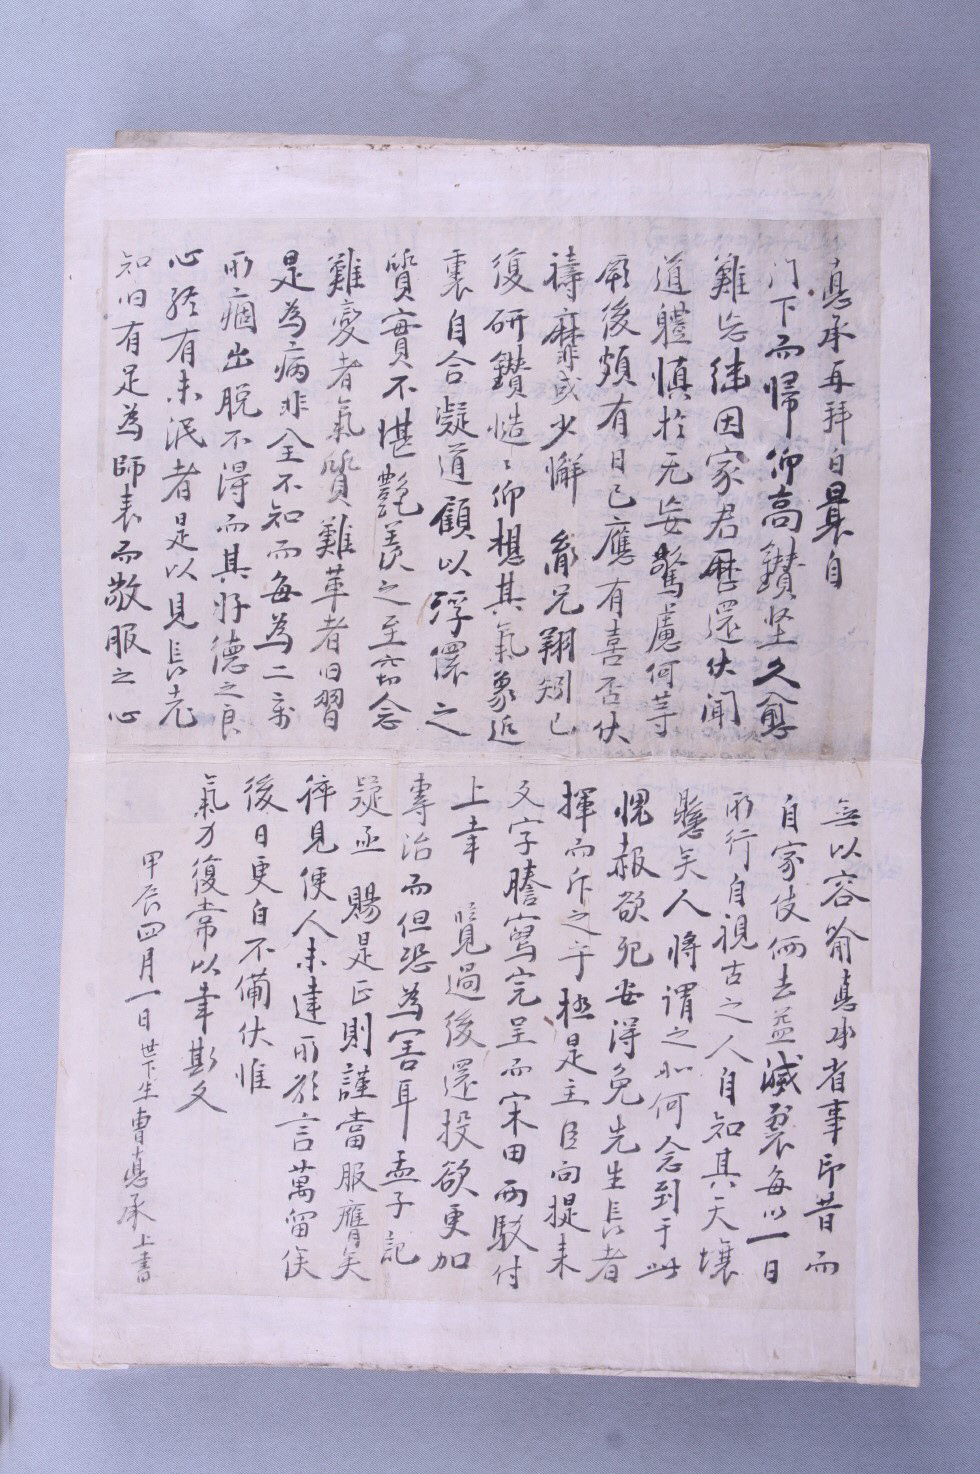 悳承再拜白曩自
門下而歸仰高鑽堅久愈
難忘續因家君歷還伏聞
道體愼於无妄驚慮何等
厥後頗有日已應有喜否伏
禱靡或少懈 胤兄翔矧已
復研鑽慥〻仰想其氣象近
裏自合凝道顧以浮儇之
質實不堪艶羨之至窃念
難變者氣質難革者旧習
是爲病非全不知而每爲二竒
所痼出脱不得而其好德之良
心終有未泯者是以見長老
知旧有足爲師表而敬服之心
無以容喩悳承省事即昔而
自家伎倆去益滅裂每以一日
所行自視古之人自知其天壤
懸矣人將謂之如何念到于此
愧赧欲死安得免先生長者
揮而斥之乎極是主臣向提來
文字謄寫完呈而宋田兩駁付
上幸 覽過後還投欲更加
專治而但恐爲害耳孟子記
疑丞 賜是正則謹當服膺矣
倅見便人未達所欲言萬留俟
後日更白不備伏惟
氣力復常以幸斯文
甲辰四月一日世下生曺悳承上書